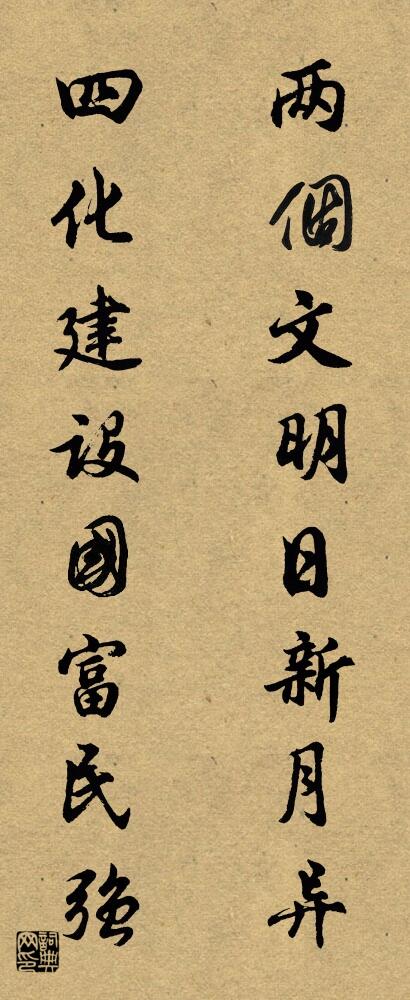 两個文明日新月异
四化建設國富民強
詞典网印